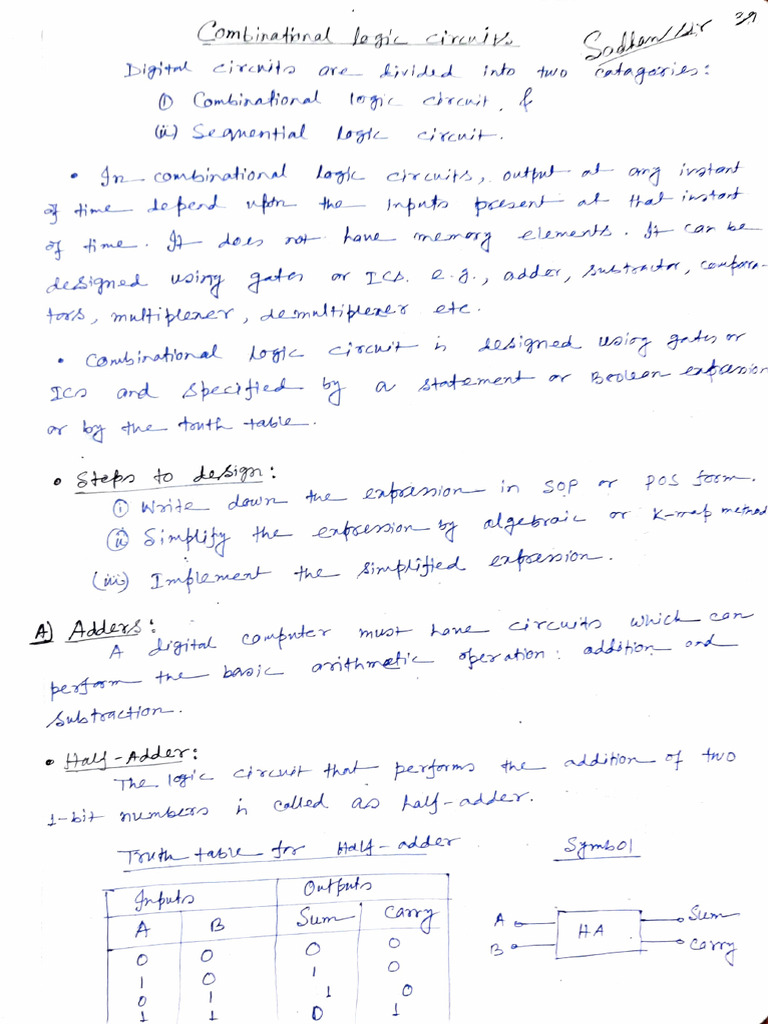 39
Combinational logic circuits
Digital circuits are divided into two catagories:
(i) Combinational logic circuit, &
(ii) Sequential logic circuit.
• In combinational logic circuits, output at any instant
of time depend upon the inputs present at that instant
of time. It does not have memory elements. It can be
designed using gates or ICs. e.g., adder, subtractor, compara-
tors, multiplexer, demultiplexer etc.
• Combinational logic circuit is designed using gates or
ICs and specified by a statement or Boolean expansion
or by the truth table.
• Steps to design:
(i) Write down the expression in SOP or POS form.
(ii) Simplify the expression by algebraic or K-map method
(iii) Implement the simplified expression.
A) Adders:
A digital computer must have circuits which can
perform the basic arithmetic operation: addition and
subtraction.
• Half-Adder:
The logic circuit that performs the addition of two
1-bit numbers is called as half-adder.
Truth table for Half-adder Symbol
Inputs Outputs
A B Sum Carry
0 0 0 0
1 0 1 0
0 1 1 0
1 1 0 1
A HA Sum
B Carry